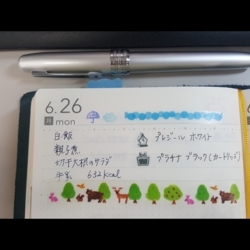 6.26
月 mon
白飯
親子煮
切干大根のサラダ
牛乳 632kcal
プレジール ホワイト
プラチナ ブラック(カートリッジ)